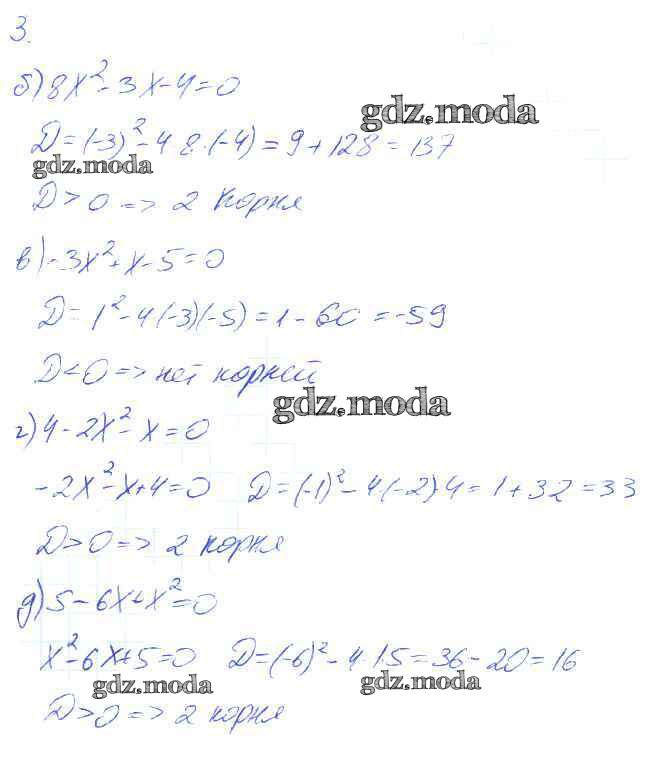 3.
б) 8x² - 3x - 4 = 0
gdz.moda
D = (-3)² - 4·8·(-4) = 9 + 128 = 137
gdz.moda
D > 0 => 2 корня
в) -3x² + x - 5 = 0
D = 1² - 4(-3)(-5) = 1 - 60 = -59
D < 0 => нет корней
gdz.moda
г) 4 - 2x² - x = 0
-2x² - x + 4 = 0 D = (-1)² - 4(-2)·4 = 1 + 32 = 33
D > 0 => 2 корня
д) 5 - 6x + x² = 0
x² - 6x + 5 = 0 D = (-6)² - 4·1·5 = 36 - 20 = 16
gdz.moda gdz.moda
D > 0 => 2 корня